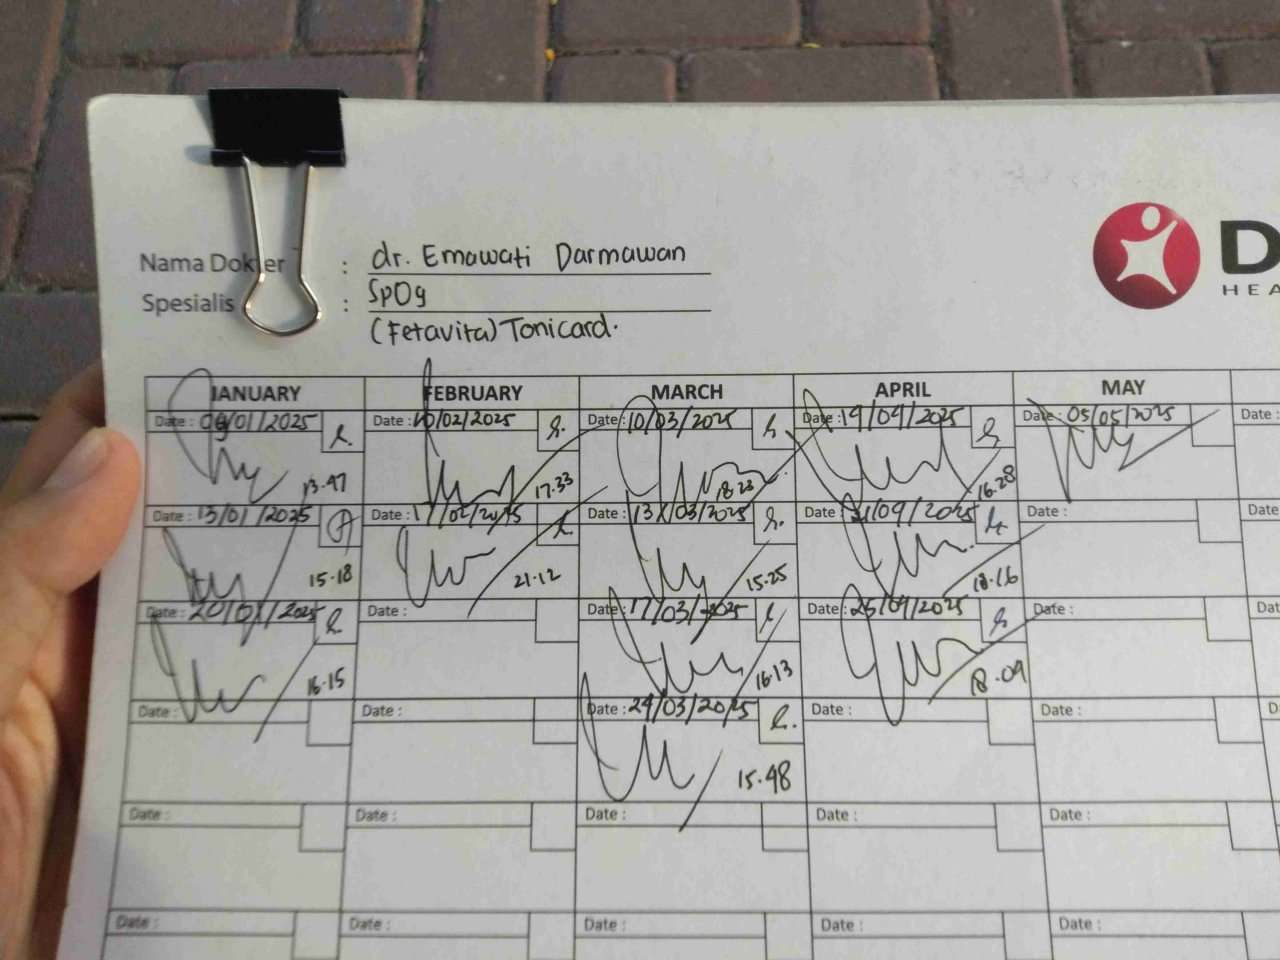 D
HEA
Nama Dokter : dr. Emawati Darmawan
Spesialis : SpOg
(Fetavita) Tonicard.
JANUARY FEBRUARY MARCH APRIL MAY
Date : 06/01/2025 Date : 10/02/2025 Date : 10/03/2025 Date : 19/04/2025 Date : 05/05/2025 Date :
13.47 17.33 18.23 16.28
Date : 13/01/2025 Date : 17/02/2025 Date : 13/03/2025 Date : 21/04/2025 Date : Date
15.18 21.12 15.25 18.16
Date : 20/01/2025 Date : Date : 17/03/2025 Date : 25/04/2025 Date : Date
16.15 16.13 18.09
Date : Date : Date : 24/03/2025 Date : Date : D
15.48
Date : Date : Date : Date : Date :
Date : Date : Date : Date : Date :